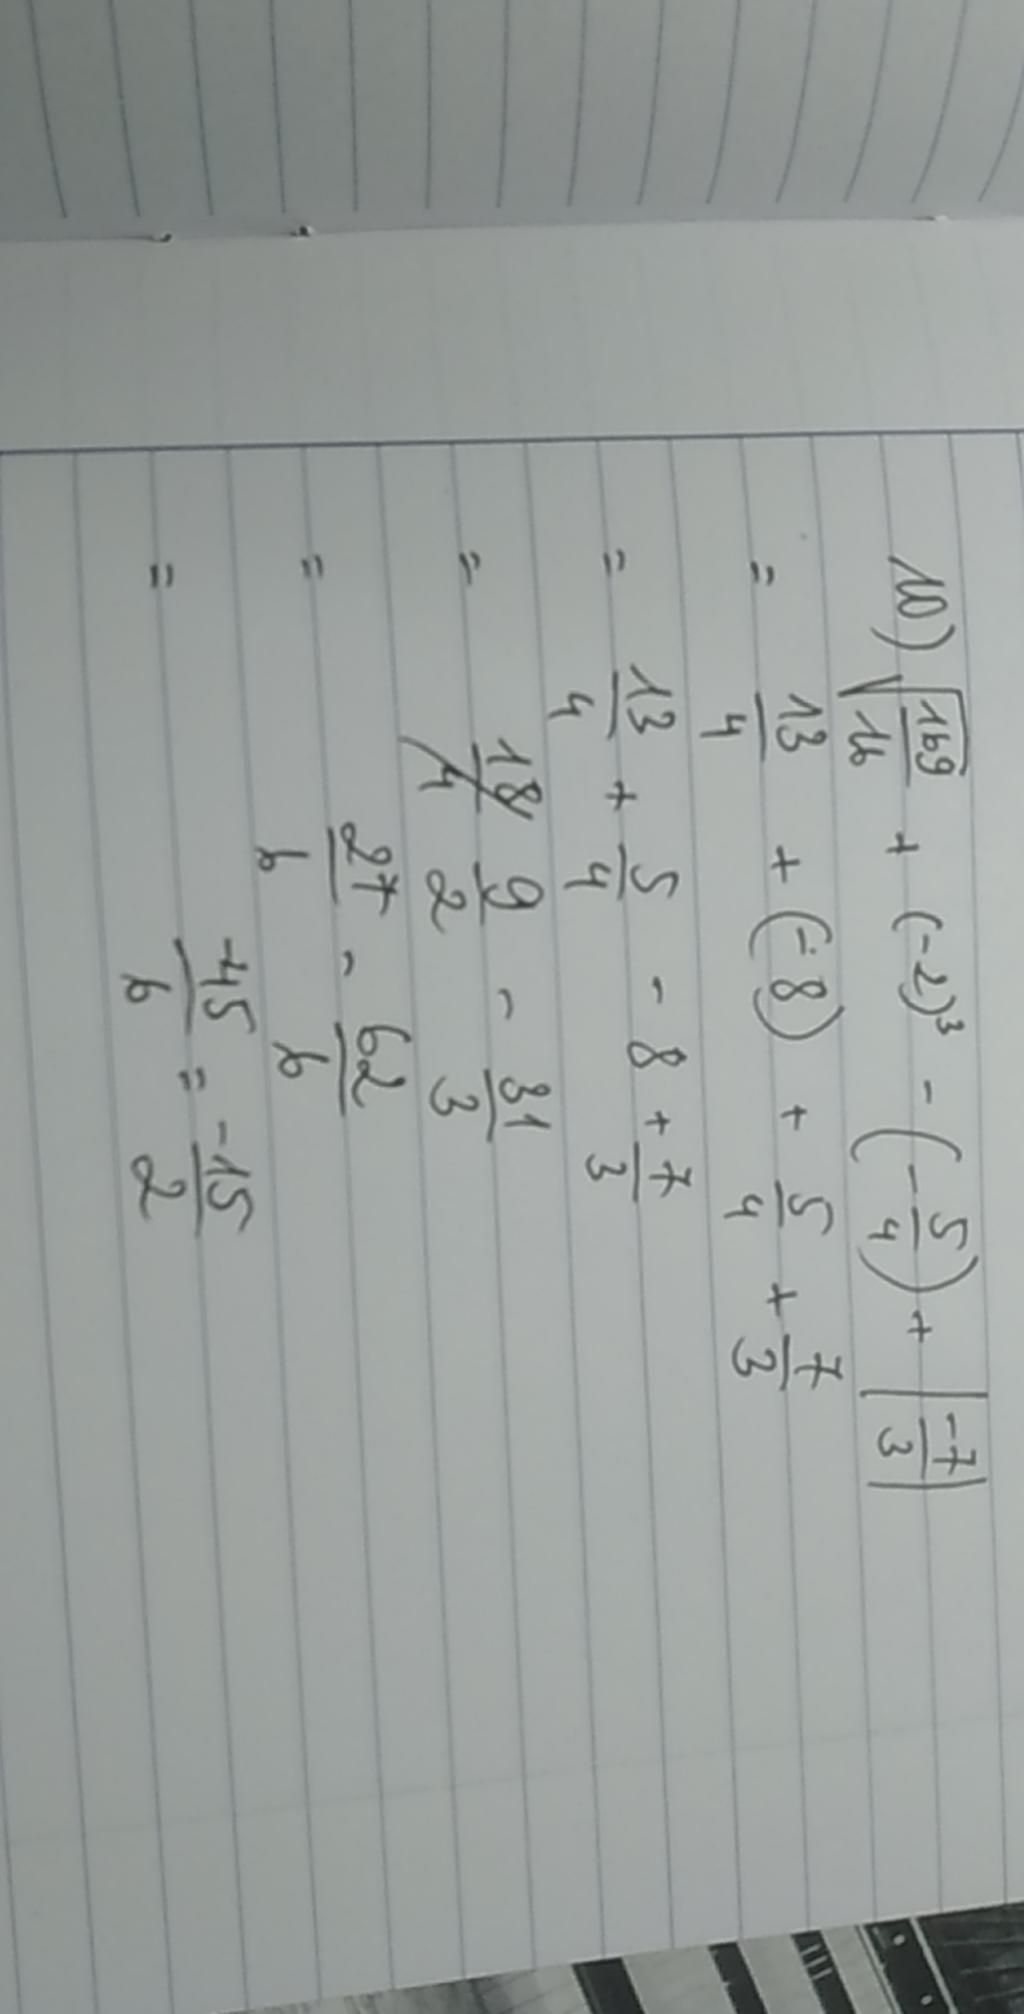 10) √(169/16) + (-2)³ - (-5/4) + |-7/3|
= 13/4 + (-8) + 5/4 + 7/3
= 13/4 + 5/4 - 8 + 7/3
= 18/4 9/2 - 31/3
= 27/6 - 62/6
= -45/6 = -15/2